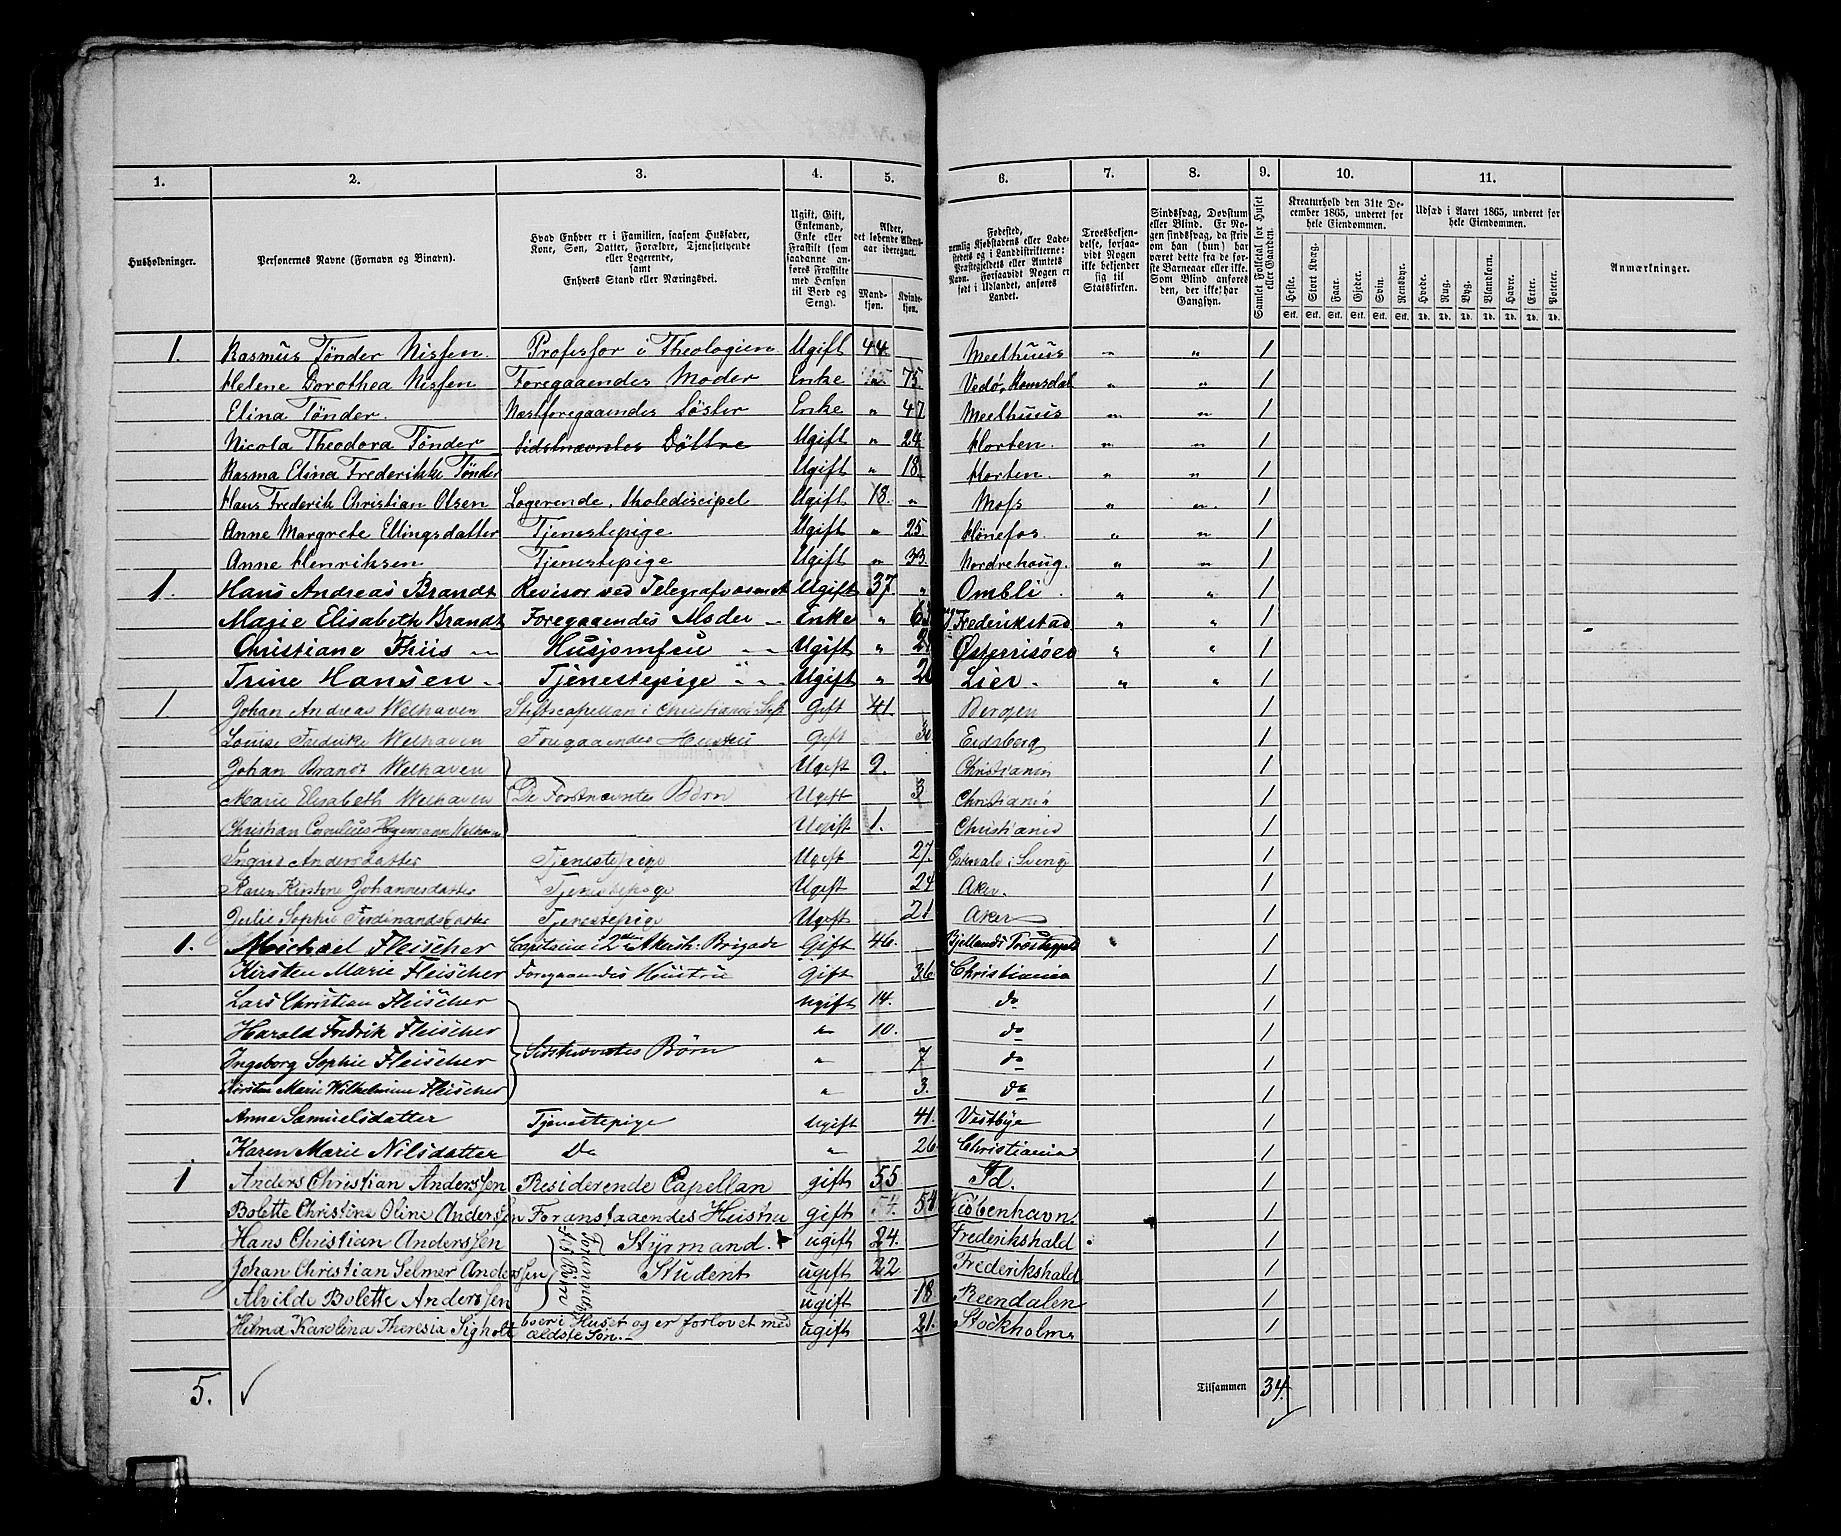 1. 2. 3. 4. 5. 6. 7. 8. 9. 10. 11.
Husholdninger.
Personernes Navne (Fornavn og Binavn).
Hvad Enhver er i Familien, saasom Husfader,
Kone, Søn, Datter, Forældre, Tjenestetyende
eller Logerende,
samt
Enhvers Stand eller Næringsvei.
Ugift, Gift,
Enkemand,
Enke eller
Fraskilt (som
saadanne an-
føres Fraskilte
med Hensyn
til Bord og
Seng).
Alder,
det løbende Alders-
aar iberegnet.
Mand-
kjøn.
Kvinde-
kjøn.
Fødested,
nemlig Kjøbstadens eller Lade-
stedets og i Landdistrikterne:
Præstegjeldets eller Amtets
Navn. Forsaavidt Nogen er
født i Udlandet, anføres
Landet.
Troesbekjen-
delse, forsaa-
vidt Nogen
ikke bekjender
sig til
Statskirken.
Sindssvag, Døvstum
eller Blind. Er No-
gen sindssvag, da skriv
om han (hun) har
været dette fra de før-
ste Barneaar eller ikke.
Som Blind anføres
den, der ikke har
Gangsyn.
Samlet Folketal for Huset
eller Gaarden.
Kreaturhold den 31te De-
cember 1865, underet for
hele Eiendommen.
Heste. Stort Kvæg. Faar. Gjeder. Svin. Rensdyr.
Stk. Stk. Stk. Stk. Stk. Stk.
Udsæd i Aaret 1865, underet for
hele Eiendommen.
Hvede. Rug. Byg. Blandkorn. Havre. Erter. Poteter.
Td. Td. Td. Td. Td. Td. Td.
Anmærkninger.
1. Rasmus Tønder Nissen. Professor i Theologien Ugift 44. Meelhuus „ „ 1
Helene Dorothea Nissen Foregaaendes Moder Enke „ 75 Vedø, Romsdal „ „ 1
Elina Tønder. Næstforegaaendes Søster Enke „ 47 Meelhuus „ „ 1
Nicola Theodora Tønder Sidstnævntes Døttre Ugift „ 24 Horten. „ „ 1
Rasma Elina Frederikke Tønder Ugift „ 18 Horten. „ „ 1
Hans Frederik Christian Olsen Logerende, Skolediscipel Ugift 18. „ Moss „ „ 1
Anne Margrete Ellingsdatter Tjenestepige Ugift „ 25 Hønefos „ „ 1
Anne Henriksen Tjenestepige Ugift „ 33. Nordrehoug. „ „ 1
1. Hans Andreas Brandt Revisor ved Telegrafvæsenet Ugift 37 „ Ombli „ „ 1
Marie Elisabeth Brandt Foregaaendes Moder Enke „ Frederikstad „ „ 1
Christiane Thiis Husjomfru Ugift „ Østerrisøer „ „ 1
Trine Hansen Tjenestepige Ugift „ Lier. „ „ 1
1 Johan Andreas Welhaven Stiftscapellan i Christiania Stift Gift 41. Bergen 1
Louise Frederike Welhaven Foregaaendes Hustru Gift Eidsberg 1
Johan Brandt Welhaven Ugift 9. Christiania 1
Marie Elisabeth Welhaven De Førstnævntes Børn Ugift 3 Christiania 1
Christian Cornelius Hagemann Welhaven Ugift 1. Christiania 1
Andersdatter Tjenestepige Ugift 27. i Sverige 1
Karen Kirstine Johannesdatter Tjenestepige Ugift 24 Aker. 1
Julie Sophie Ferdinandsdatter Tjenestepige Ugift 21 Aker 1
1. Michael Fleischer Capitain i 2den Akersh: Brigade Gift 46. Bjellands Præstegjeld „ 1
Kirsten Marie Fleischer Foregaaendes Hustru Gift 36 Christiania 1
Lars Christian Fleischer Ugift 14. do 1
Harald Fredrik Fleischer „ 10. do 1
Ingeborg Sophie Fleischer Sidstnævntes Børn „ 7 do 1
Kirsten Marie Wilhelmine Fleischer „ 3. do 1
Anne Samuelsdatter Tjenestepige Ugift 41. Vestbye 1
Karen Marie Nilsdatter Do „ 26 Christiania 1
1 Anders Christian Anderssen Residerende Capellan gift 55 Id. 1
Bolette Christine Oline Anderssen Foranstaaendes Hustru gift 54 Kiøbenhavn. 1
Hans Christian Anderssen Styrmand. ugift 24. Frederikshald 1
Johan Christian Selmer Anderssen Student ugift 22 Frederikshald 1
Alvilde Bolette Anderssen ugift 18 Reendalen 1
Hilma Karolina Theresia boer i Huset og er forlovet med
ældste Søn. ugift 21. Stockholm 1
5. Tilsammen 34.